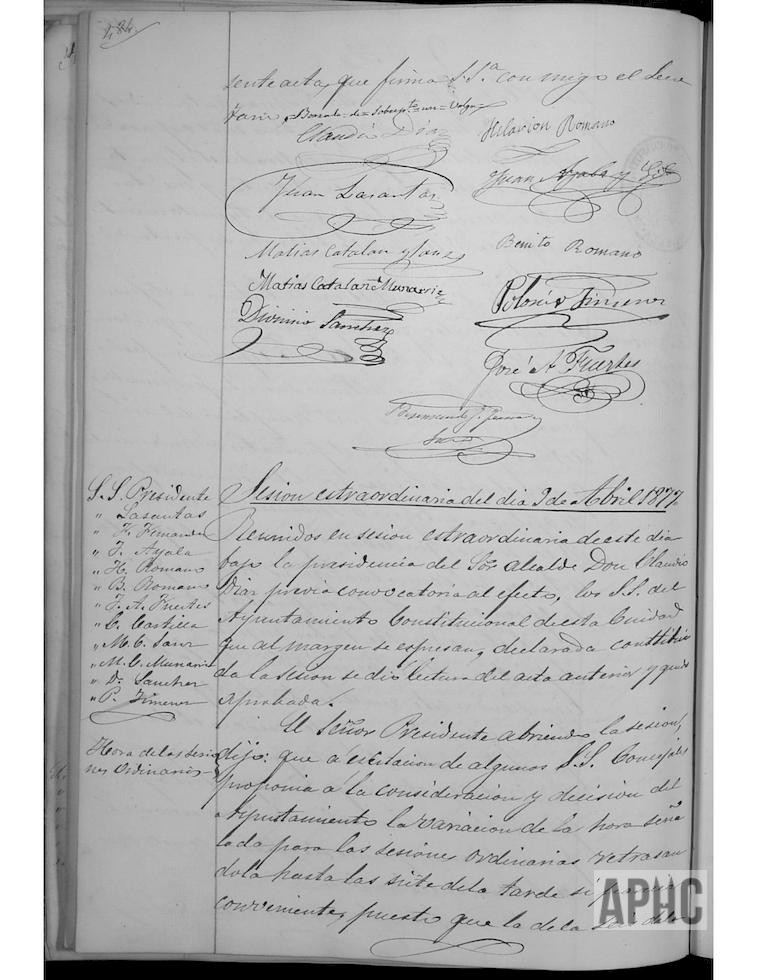 sente acta, que firma S. Sª. con migo el Secre
tario, Borrado=de=Sobrepto=un=Valga
Claudio Diaz
Hilarion Romano
Juan Lasantas
Juan Ayala y Gil
Matias Catalan y Sanz
Benito Romano
Matias Catalan Munarriz
Polonio Jimenez
Dionisio Sanchez
José A. Fuertes
Srio
S. S. Presidente
" Lasantas
" H. Fernandez
" J. Ayala
" H. Romano
" B. Romano
" J. A. Fuertes
" C. Castilla
" M. C. Sanz
" M. C. Munarriz
" D. Sanchez
" P. Jimenez
Hora de las sesio
nes Ordinarias
Sesion estraordinaria del dia 9 de Abril 1877
Reunidos en sesion estraordinaria de este dia
bajo la presidencia del Sor. Alcalde Don Claudio
Diaz previa convocatoria al efecto, los S.S. del
Ayuntamiento Constitucional de esta Ciudad
que al margen se espresan, declarada constitui
da la sesion se dió lectura del acta anterior y quedó
aprobada.
El Señor Presidente abriendo la sesion,
dijo: que á escitacion de algunos S.S. Concejales
proponia á la consideracion y decision del
Ayuntamiento la variacion de la hora seña
lada para las sesiones ordinarias retrasan
dola hasta las siete de la tarde si
conveniente, puesto que la de la
APHC